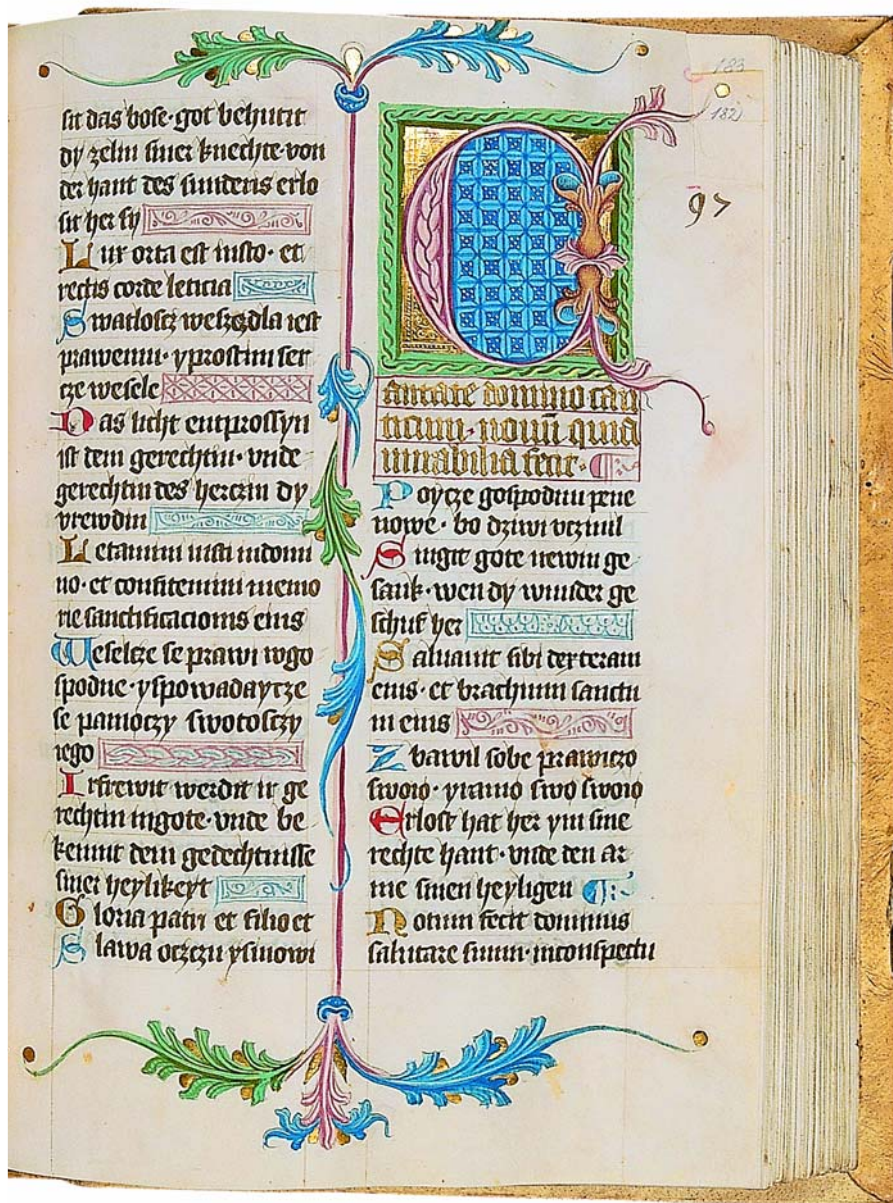 sit das bose · got behutit
dy zelin siner knechte · von
der hant des sunders erlo
sit her sy
Lux orta est iusto · et
rectis corde leticia
Swatloscz weszedla iest
prawemu · y prostim ser
cze wesele
Das licht entprossyn
ist dem gerechtin · vnde
gerechtin des herczin dy
vrewdin
Letamini iusti in domi
no · et confitemini memo
rie sanctificacionis eius
Weselcze se prawi w go
spodne · y spowadaytcze
se pamoczy swotosczy
iego
Irfrewit werdit ir ge
rechtin in gote · vnde be
kennit dem gedechtnisse
siner heylikeyt
Gloria patri et filio et
Slawa oczczu y sinowi
183
182)
97
Cantate domino can
ticum · nouū quia
mirabilia fecit ·
Poycze gospodnu pene
nowe · bo dziwi vczinil
Singit gote newin ge
sank · wen dy wunder ge
schuf her
Saluauit sibi dexteram
eius · et brachium sanctu
m eius
Zbawil sobe prawiczo
swoio · y ramo swo swoio
Erlost hat her ym sine
rechte hant · vnde den ar
me sinen heyligen
Notum fecit dominus
salutare suum · in conspectu